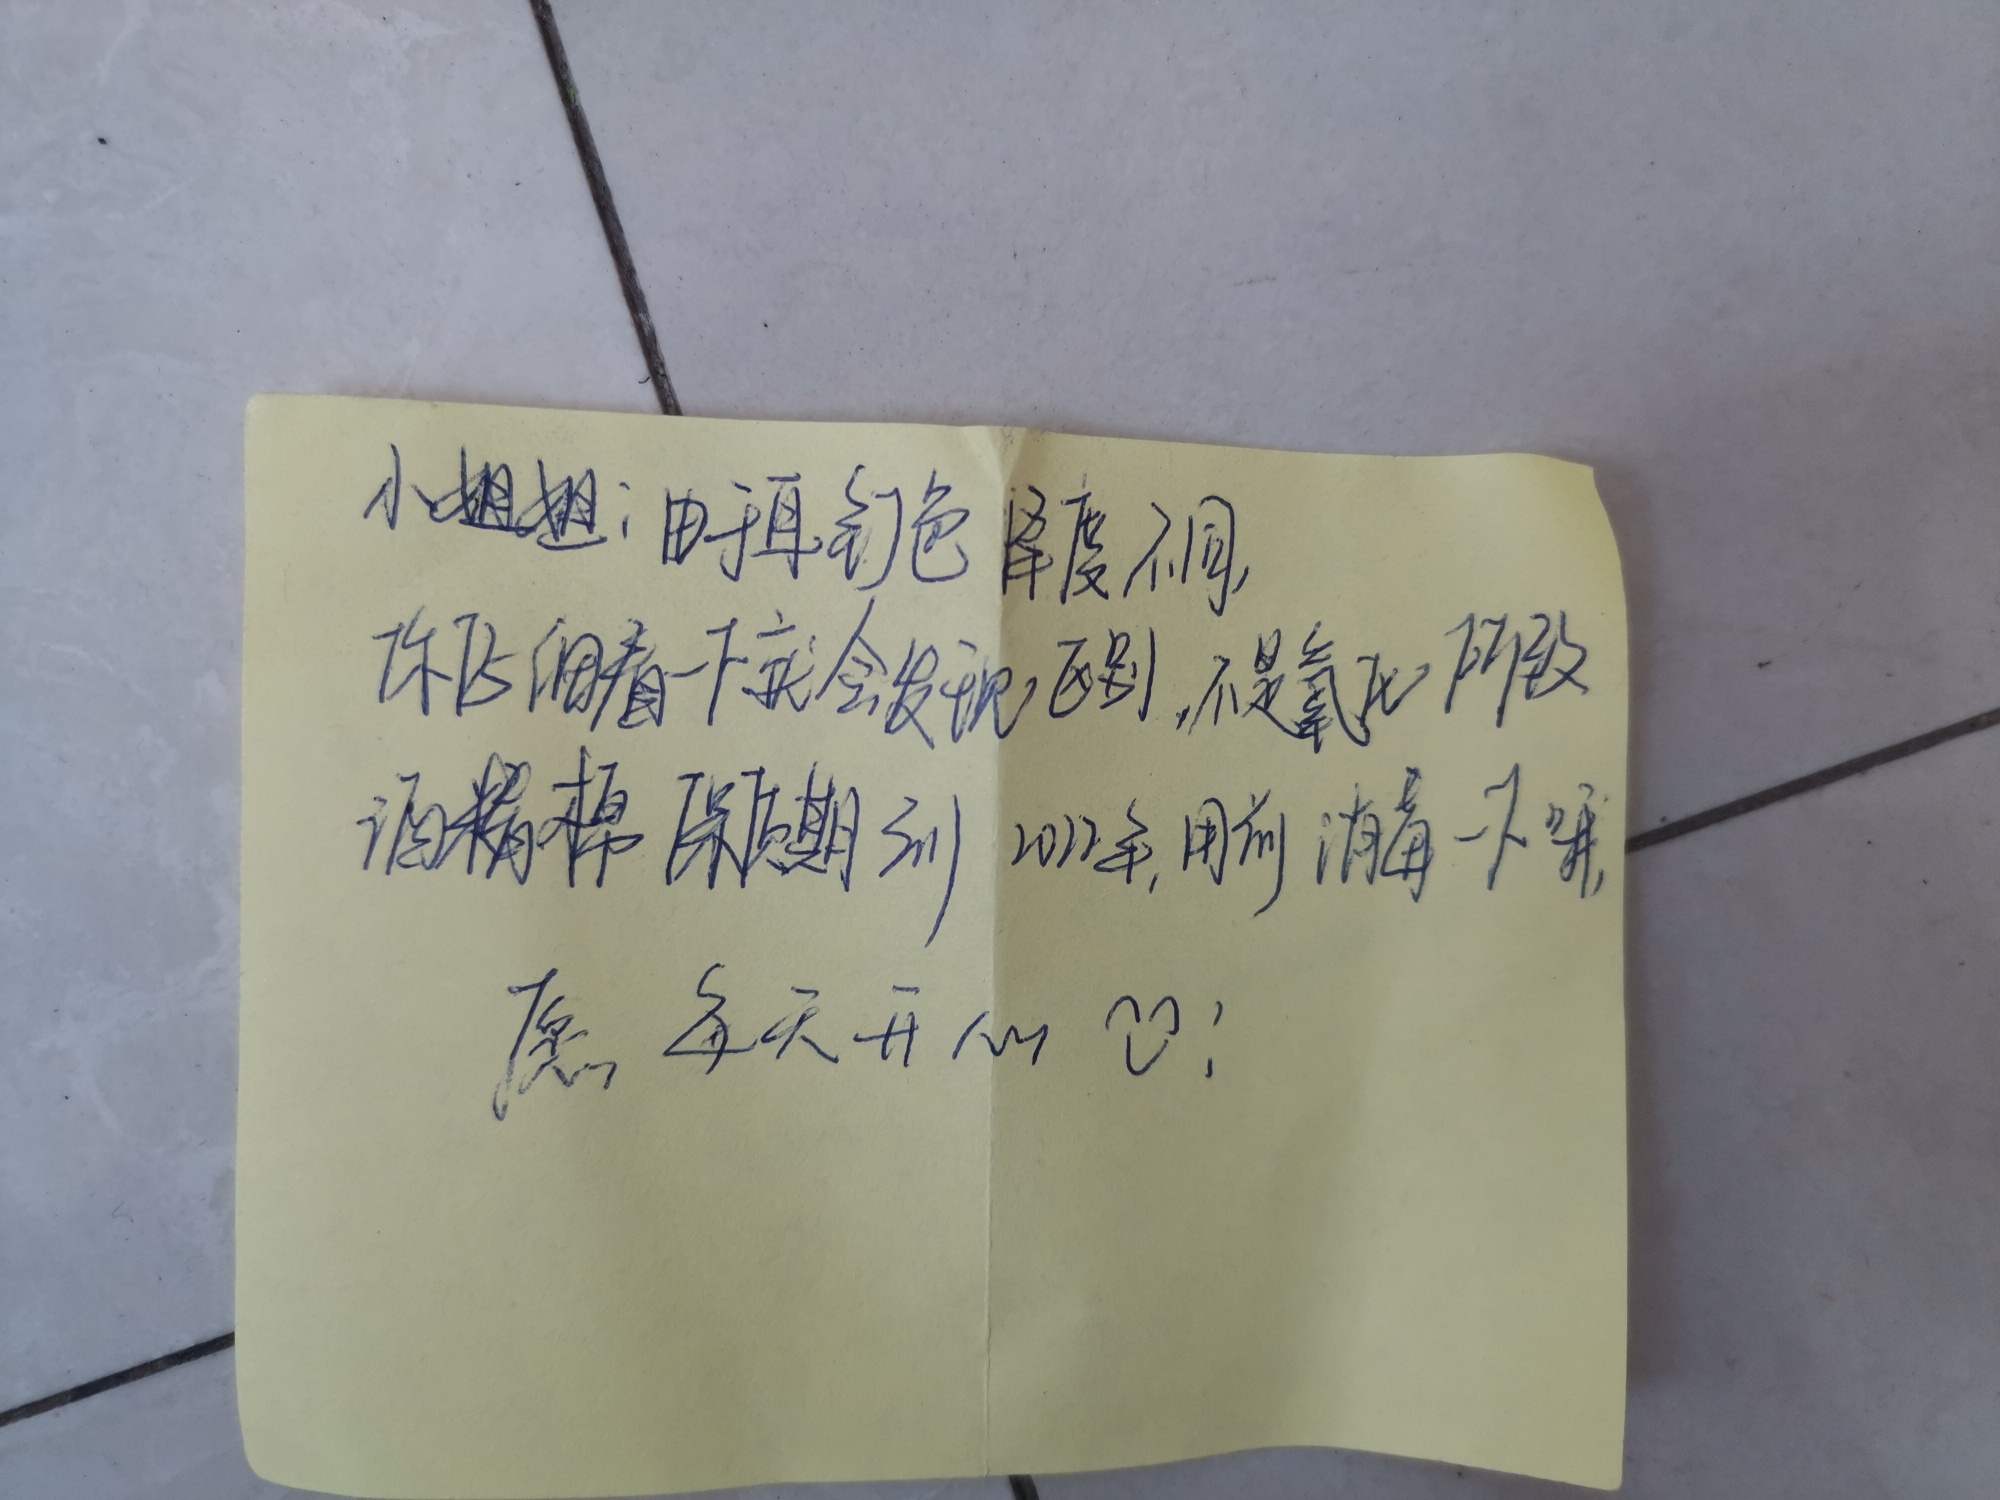 小姐姐:由于耳钉色泽度不同,
你仔细看一下就会发现区别,不是氧化所致
酒精棉保质期到2022年,用前消毒一下哦,
愿每天开心!